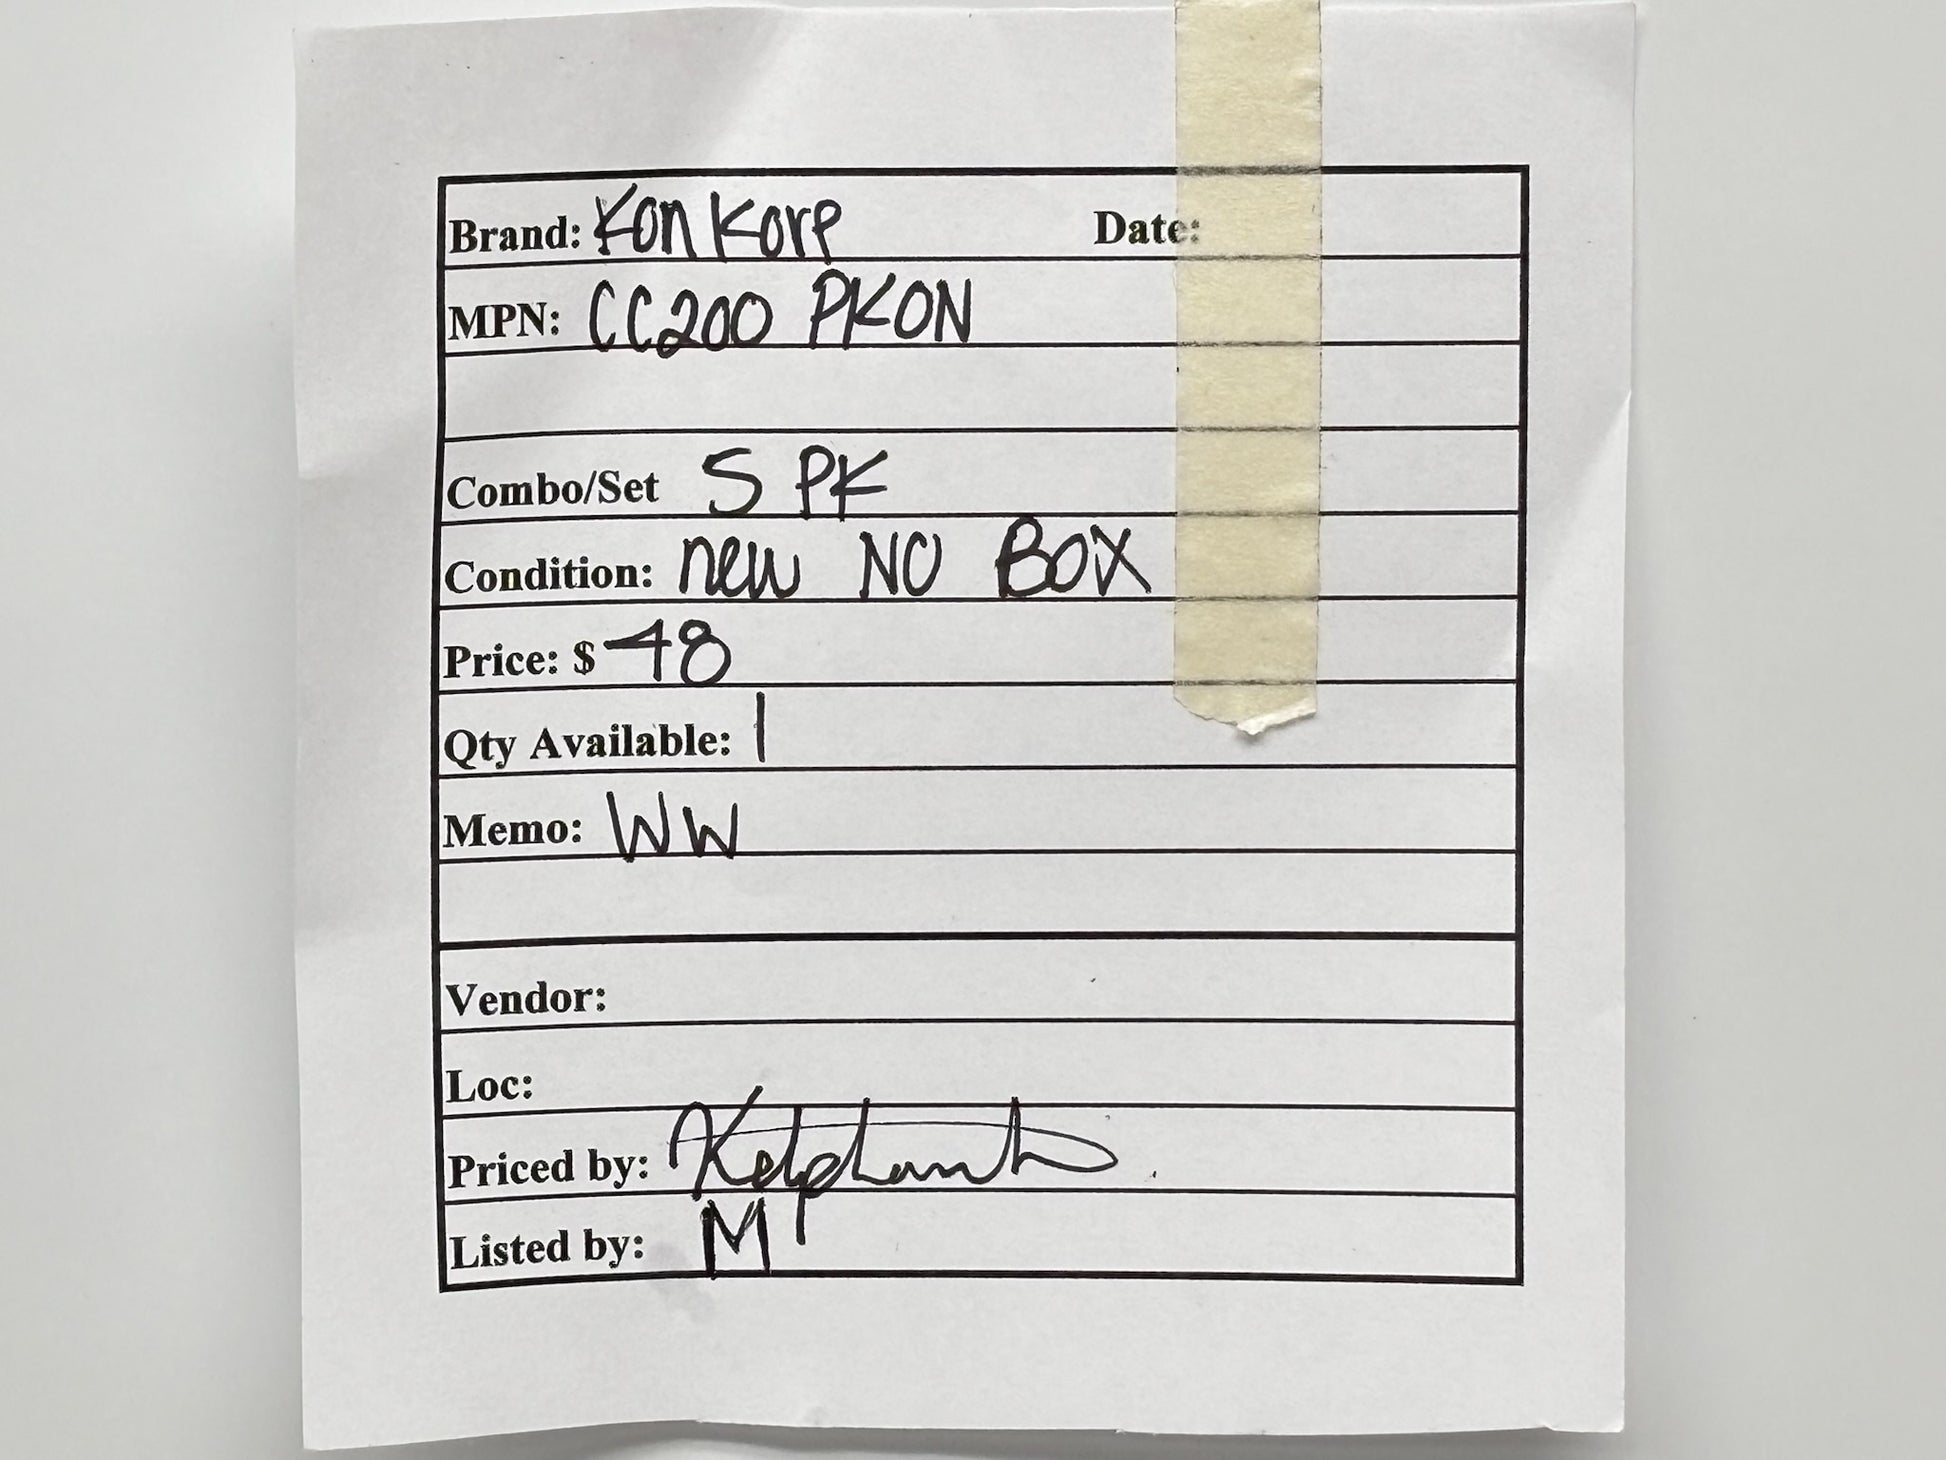 Brand: Kon Korp Date:
MPN: CC200 PKON
Combo/Set 5 PK
Condition: new NO BOX
Price: $ 48
Qty Available: 1
Memo: WW
Vendor:
Loc:
Priced by:
Listed by: M